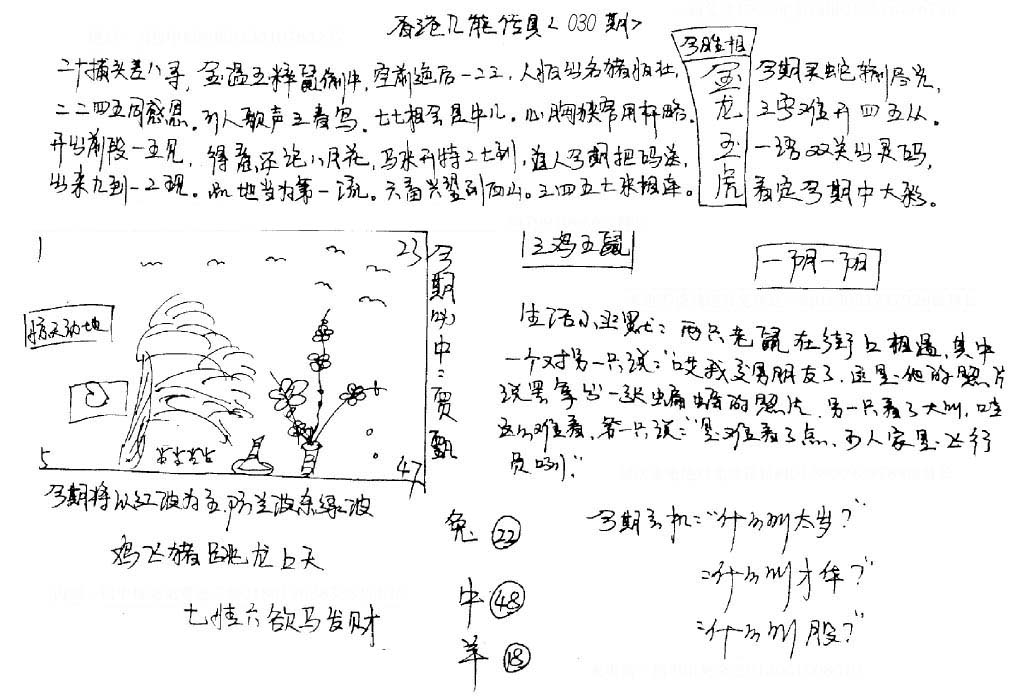 香港九龍传真<030期>
今期生相
金龙玉虎
二十搞头差八寻，金温玉粹鼠偷中，空前绝后一二三，人报出名猪报社，
今期买蛇输尽光，
二二四五同感恩。引人歌声三春写。七七相会是中儿。心胸狭窄用
三字难开四五从。
开出前段一五见，得意还记八月花，马来开特二七到，值人今期把码送，
一语双关出灵码，
出来九到一二现。此地当为第一流。六畜兴
到西山。三四五七来报
看定今期中大彩。
1
23
惊天动地
5
47
今期必中：贾甄
三鸡五鼠
一阴一阳
生活小幽默：两只老鼠在街上相遇，其中
一个对另一只说：“哎我交男朋友了，这是他的照片
说罢拿出一张蝙蝠的照片，另一只看了大叫，哇
这么难看，第一只说：“是难看了点，可人家是飞行
员咧”
今期将以红波为主，防兰波杀绿波
鸡飞猪跳龙上天
七情六欲马发财
兔 22
中 48
羊 18
今期玄机：“什么叫太岁？”
：“什么叫才华？”
：“什么叫股？”